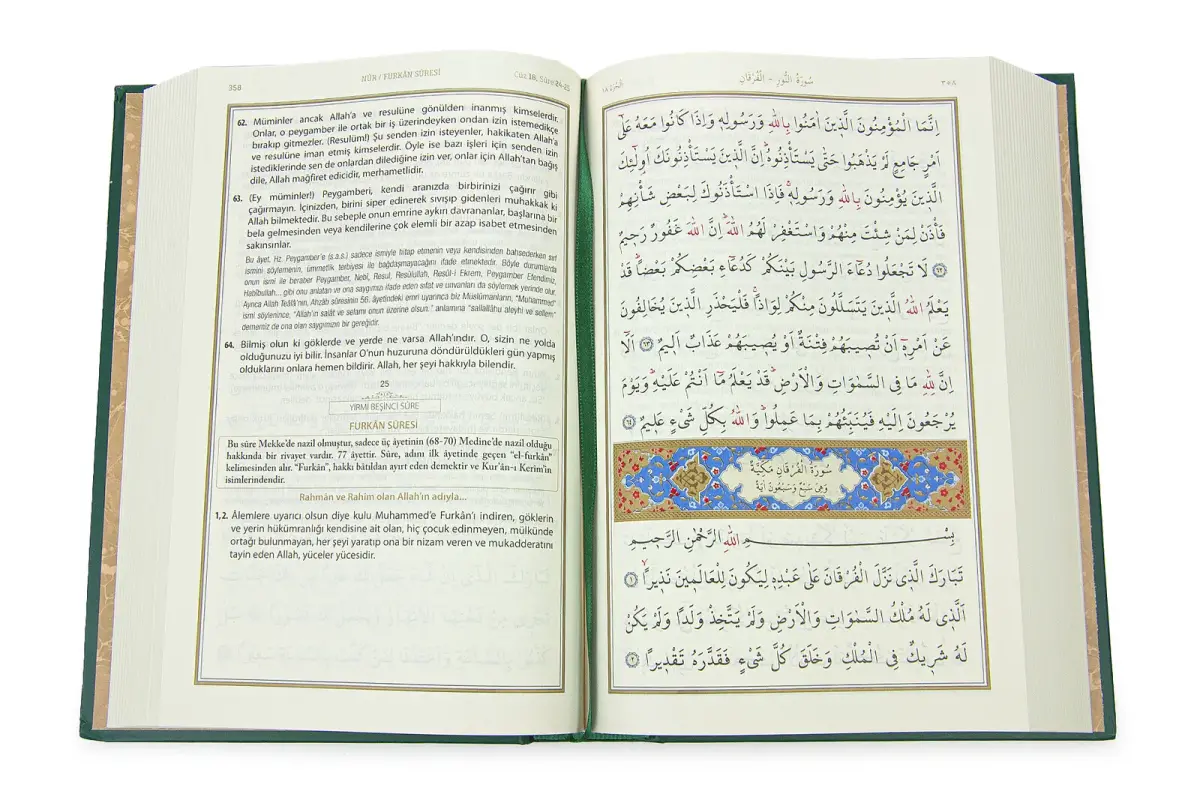 358
NÛR / FURKÂN SÛRESİ
Cüz 18, Sûre 24-25
62. Müminler ancak Allah'a ve resulüne gönülden inanmış kimselerdir.
Onlar, o peygamber ile ortak bir iş üzerindeyken ondan izin istemedikçe
bırakıp gitmezler. (Resulüm!) Şu senden izin isteyenler, hakikaten Allah'a
ve resulüne iman etmiş kimselerdir. Öyle ise bazı işleri için senden izin
istediklerinde sen de onlardan dilediğine izin ver, onlar için Allah'tan bağış
dile, Allah mağfiret edicidir, merhametlidir.
63. (Ey müminler!) Peygamberi, kendi aranızda birbirinizi çağırır gibi
çağırmayın. İçinizden, birini siper edinerek sıvışıp gidenleri muhakkak ki
Allah bilmektedir. Bu sebeple onun emrine aykırı davrananlar, başlarına bir
bela gelmesinden veya kendilerine çok elemli bir azap isabet etmesinden
sakınsınlar.
Bu âyet, Hz. Peygamber'e (s.a.s.) sadece ismiyle hitap etmenin veya kendisinden bahsederken sırf
ismini söylemenin, ümmetlik terbiyesi ile bağdaşmayacağını ifade etmektedir. Böyle durumlarda
onun ismi ile beraber Peygamber, Nebî, Resul, Resûlullah, Resûl-i Ekrem, Peygamber Efendimiz,
Habîbullah... gibi onu anlatan ve ona saygımızı ifade eden sıfat ve unvanları da söylemek yerinde olur.
Ayrıca Allah Teâlâ'nın, Ahzâb sûresinin 56. âyetindeki emri uyarınca biz Müslümanların, "Muhammed"
ismi söylenince, "Allah'ın salât ve selamı onun üzerine olsun." anlamına "sallallânu aleyhi ve sellem"
dememiz de ona olan saygımızın bir gereğidir.
64. Bilmiş olun ki göklerde ve yerde ne varsa Allah'ındır. O, sizin ne yolda
olduğunuzu iyi bilir. İnsanlar O'nun huzuruna döndürüldükleri gün yapmış
olduklarını onlara hemen bildirir. Allah, her şeyi hakkıyla bilendir.
25
YİRMİ BEŞİNCİ SÛRE
FURKÂN SÛRESİ
Bu sûre Mekke'de nazil olmuştur, sadece üç âyetinin (68-70) Medine'de nazil olduğu
hakkında bir rivayet vardır. 77 âyettir. Sûre, adını ilk âyetinde geçen "el-furkân"
kelimesinden alır. "Furkân", hakkı bâtıldan ayırt eden demektir ve Kur'ân-ı Kerim'in
isimlerindendir.
Rahmân ve Rahîm olan Allah'ın adıyla...
1,2. Âlemlere uyarıcı olsun diye kulu Muhammed'e Furkân'ı indiren, göklerin
ve yerin hükümranlığı kendisine ait olan, hiç çocuk edinmeyen, mülkünde
ortağı bulunmayan, her şeyi yaratıp ona bir nizam veren ve mukadderatını
tayin eden Allah, yüceler yücesidir.
٣٥٨
سُورَةُ النُّورِ - الْفُرْقَانِ
الْجُزْءُ ١٨
اِنَّمَا الْمُؤْمِنُونَ الَّذ۪ينَ اٰمَنُوا بِاللّٰهِ وَرَسُولِه۪ وَاِذَا كَانُوا مَعَهُ عَلٰٓى
اَمْرٍ جَامِعٍ لَمْ يَذْهَبُوا حَتّٰى يَسْتَأْذِنُوهُۜ اِنَّ الَّذ۪ينَ يَسْتَأْذِنُونَكَ اُو۬لٰٓئِكَ
الَّذ۪ينَ يُؤْمِنُونَ بِاللّٰهِ وَرَسُولِه۪ۚ فَاِذَا اسْتَأْذَنُوكَ لِبَعْضِ شَأْنِهِمْ
فَأْذَنْ لِمَنْ شِئْتَ مِنْهُمْ وَاسْتَغْفِرْ لَهُمُ اللّٰهَۜ اِنَّ اللّٰهَ غَفُورٌ رَح۪يمٌ
﴿٦٢﴾ لَا تَجْعَلُوا دُعَٓاءَ الرَّسُولِ بَيْنَكُمْ كَدُعَٓاءِ بَعْضِكُمْ بَعْضًاۜ قَدْ
يَعْلَمُ اللّٰهُ الَّذ۪ينَ يَتَسَلَّلُونَ مِنْكُمْ لِوَاذًاۚ فَلْيَحْذَرِ الَّذ۪ينَ يُخَالِفُونَ
عَنْ اَمْرِه۪ٓ اَنْ تُص۪يبَهُمْ فِتْنَةٌ اَوْ يُص۪يبَهُمْ عَذَابٌ اَل۪يمٌ ﴿٦٣﴾ اَلَٓا
اِنَّ لِلّٰهِ مَا فِي السَّمٰوَاتِ وَالْاَرْضِۜ قَدْ يَعْلَمُ مَٓا اَنْتُمْ عَلَيْهِۜ وَيَوْمَ
يُرْجَعُونَ اِلَيْهِ فَيُنَبِّئُهُمْ بِمَا عَمِلُواۜ وَاللّٰهُ بِكُلِّ شَيْءٍ عَل۪يمٌ ﴿٦٤﴾
سُورَةُ الْفُرْقَانِ مَكِّيَّةٌ
وَهِيَ سَبْعٌ وَسَبْعُونَ اٰيَةً
بِسْمِ اللّٰهِ الرَّحْمٰنِ الرَّح۪يمِ
تَبَارَكَ الَّذ۪ي نَزَّلَ الْفُرْقَانَ عَلٰى عَبْدِه۪ لِيَكُونَ لِلْعَالَم۪ينَ نَذ۪يرًاۙ ﴿١﴾
اَلَّذ۪ي لَهُ مُلْكُ السَّمٰوَاتِ وَالْاَرْضِ وَلَمْ يَتَّخِذْ وَلَدًا وَلَمْ يَكُنْ
لَهُ شَر۪يكٌ فِي الْمُلْكِ وَخَلَقَ كُلَّ شَيْءٍ فَقَدَّرَهُ تَقْد۪يرًا ﴿٢﴾